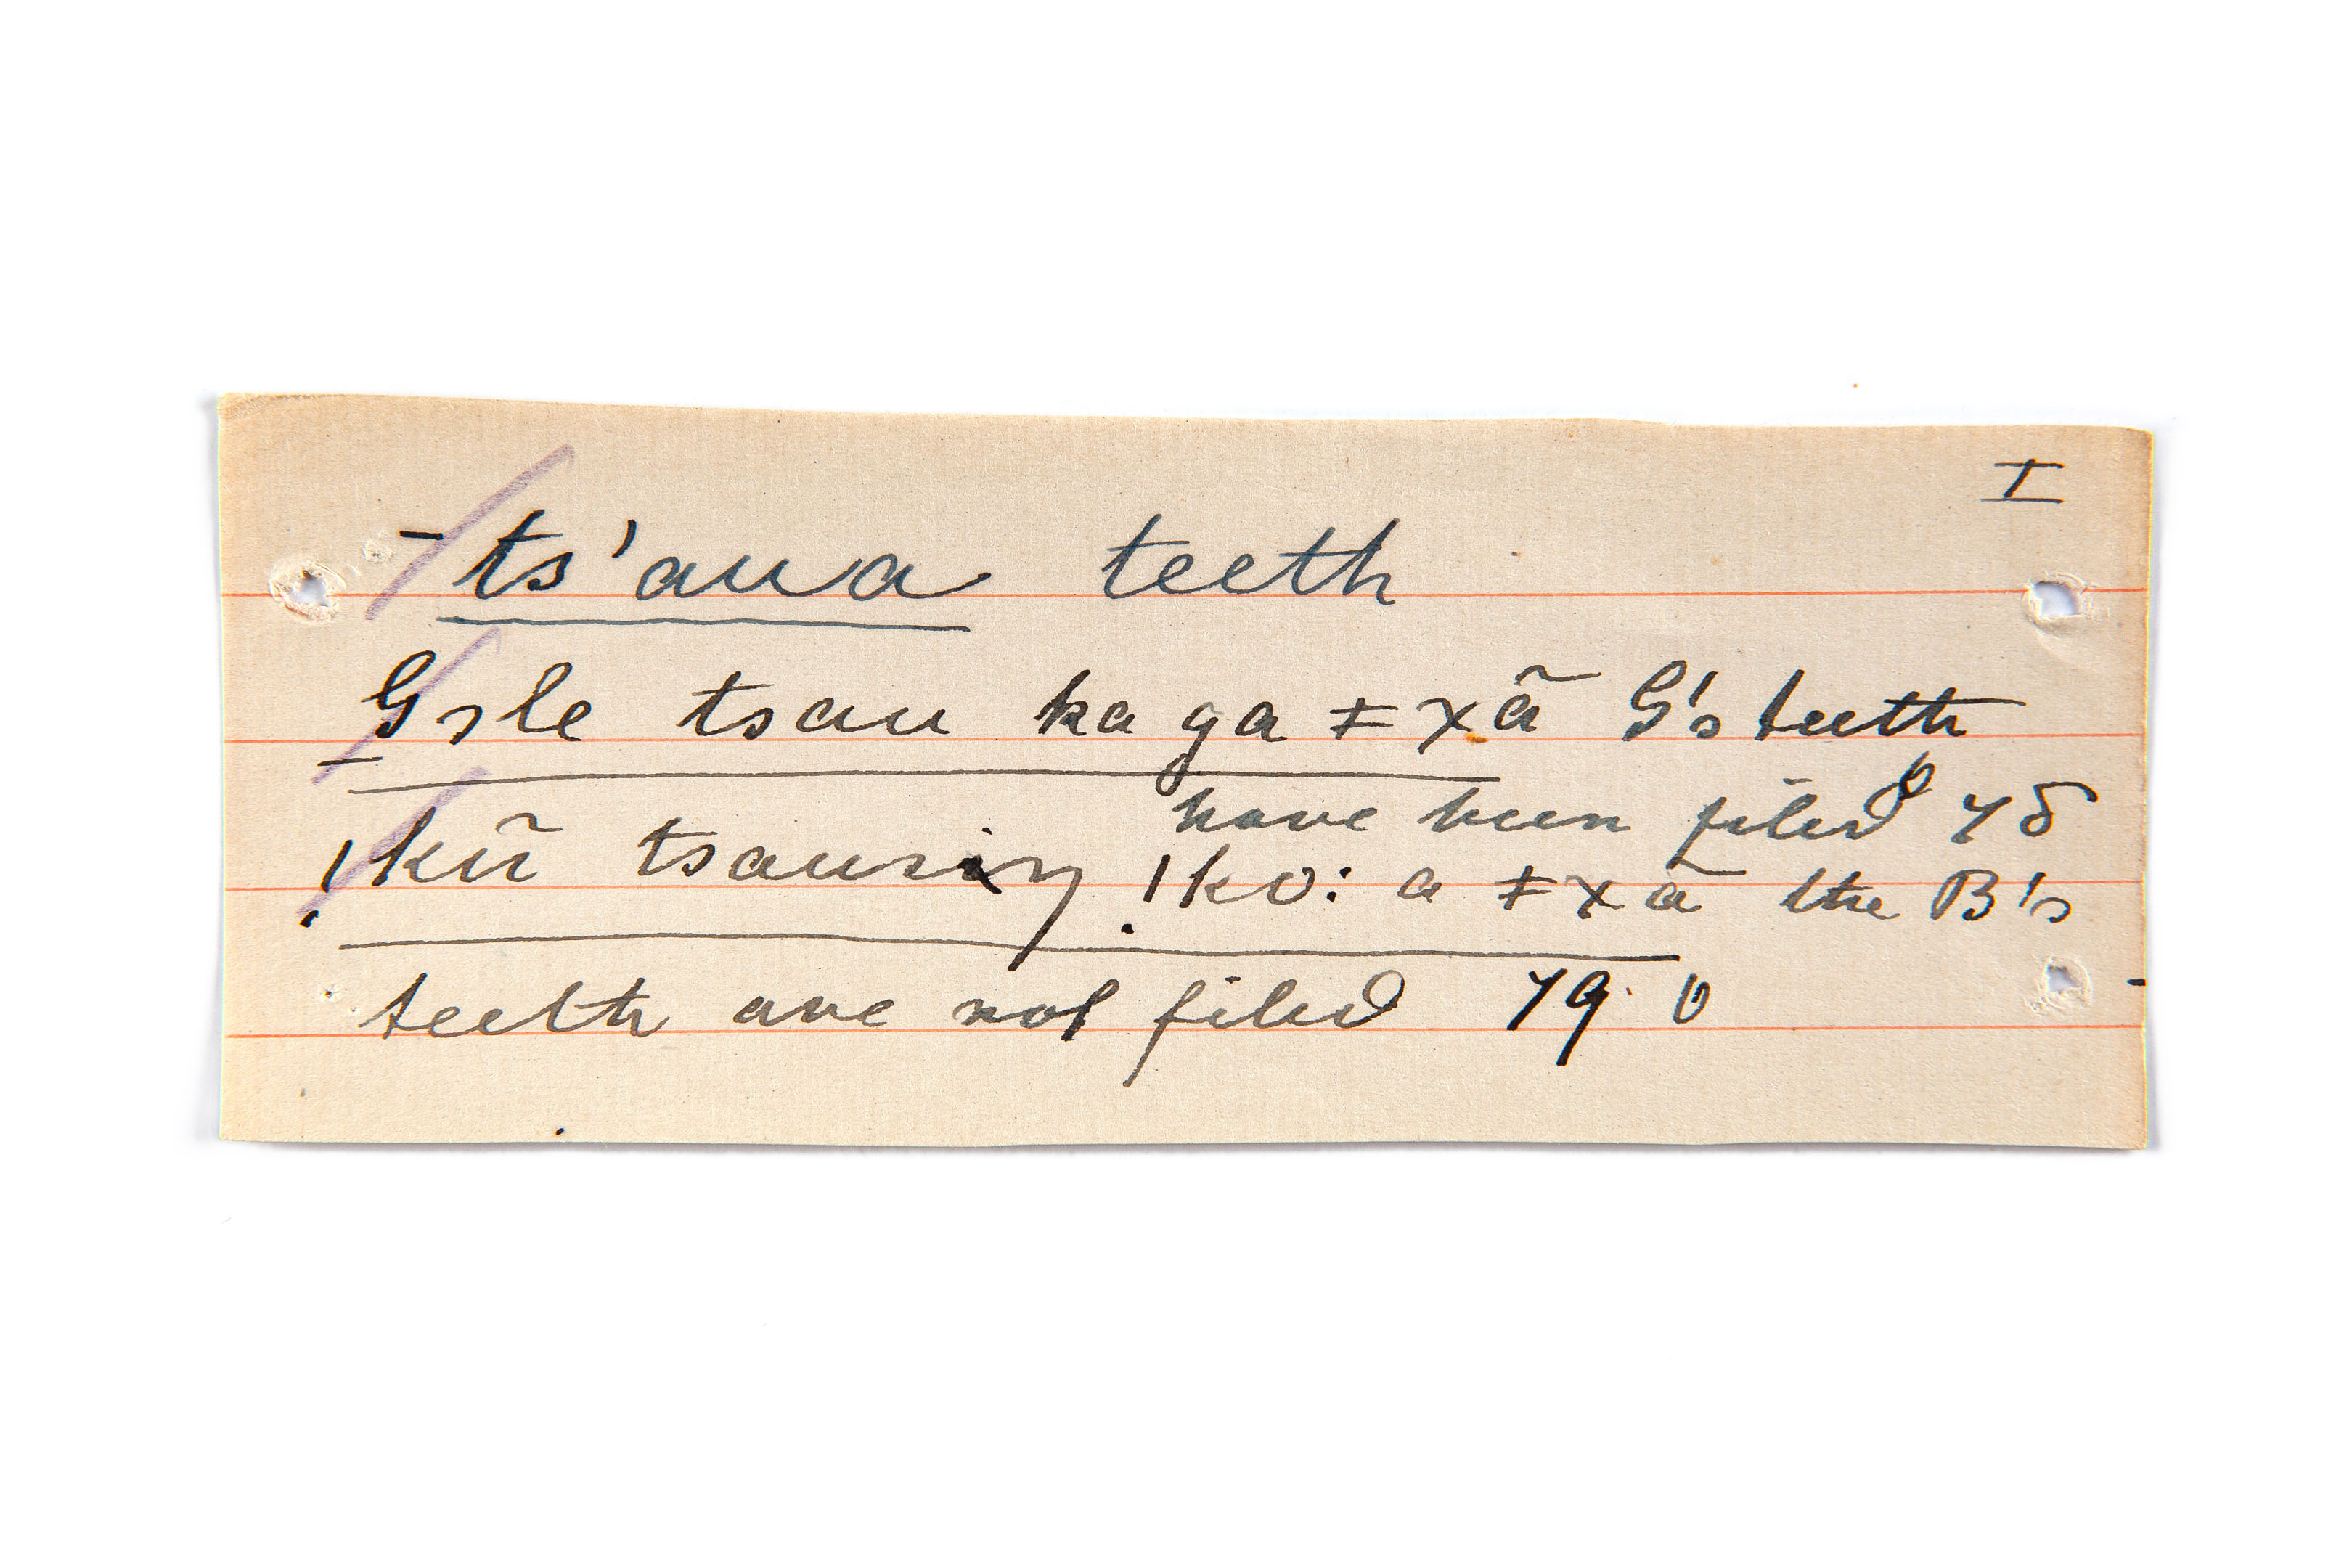 I
‾ts'aua teeth
_Gɔle tsau ka ga ǂxã G's teeth
have been filed 78
!kũ tsausiŋ !ko: a ǂxā the B's
teeth are not filed 79 b